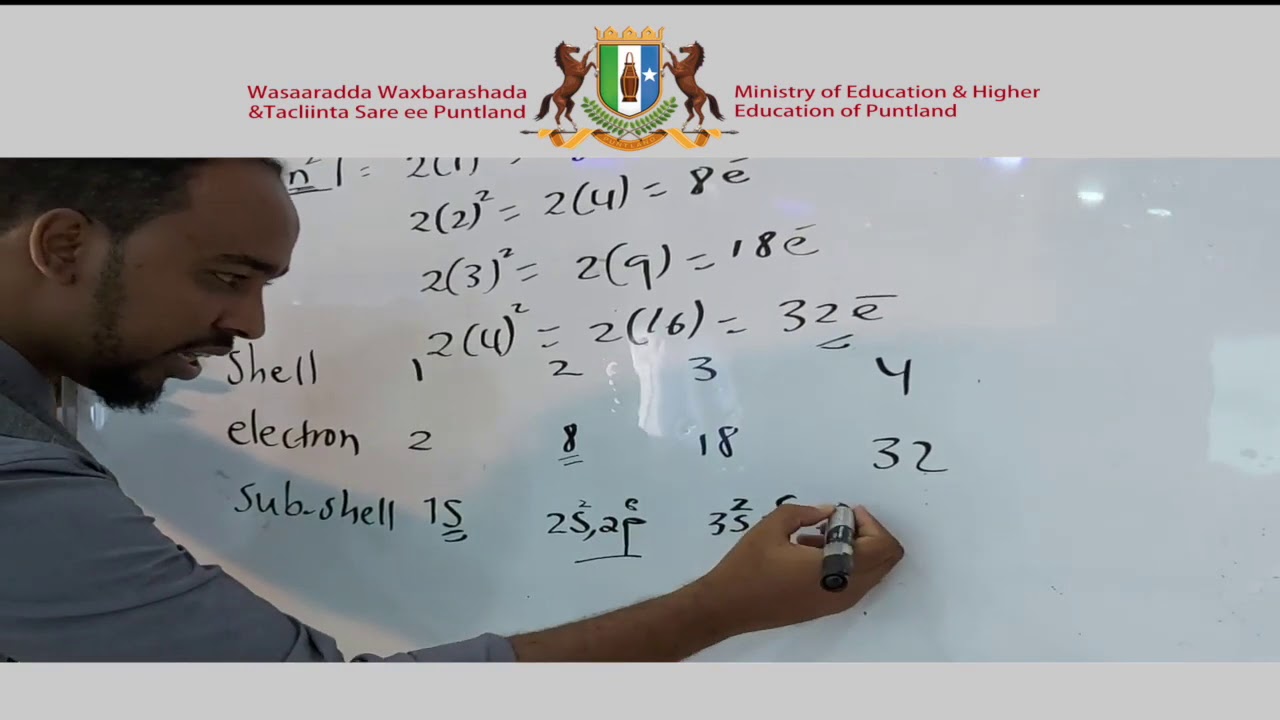 Wasaaradda Waxbarashada
&Tacliinta Sare ee Puntland
Ministry of Education & Higher
Education of Puntland
PUNTLAND
n² = 2(1)
2(2)² = 2(4) = 8e⁻
2(3)² = 2(9) = 18e⁻
2(4)² = 2(16) = 32e⁻
Shell 1 2 3 4
electron 2 8 18 32
Sub-shell 1S 2S²,2p⁶ 3S²